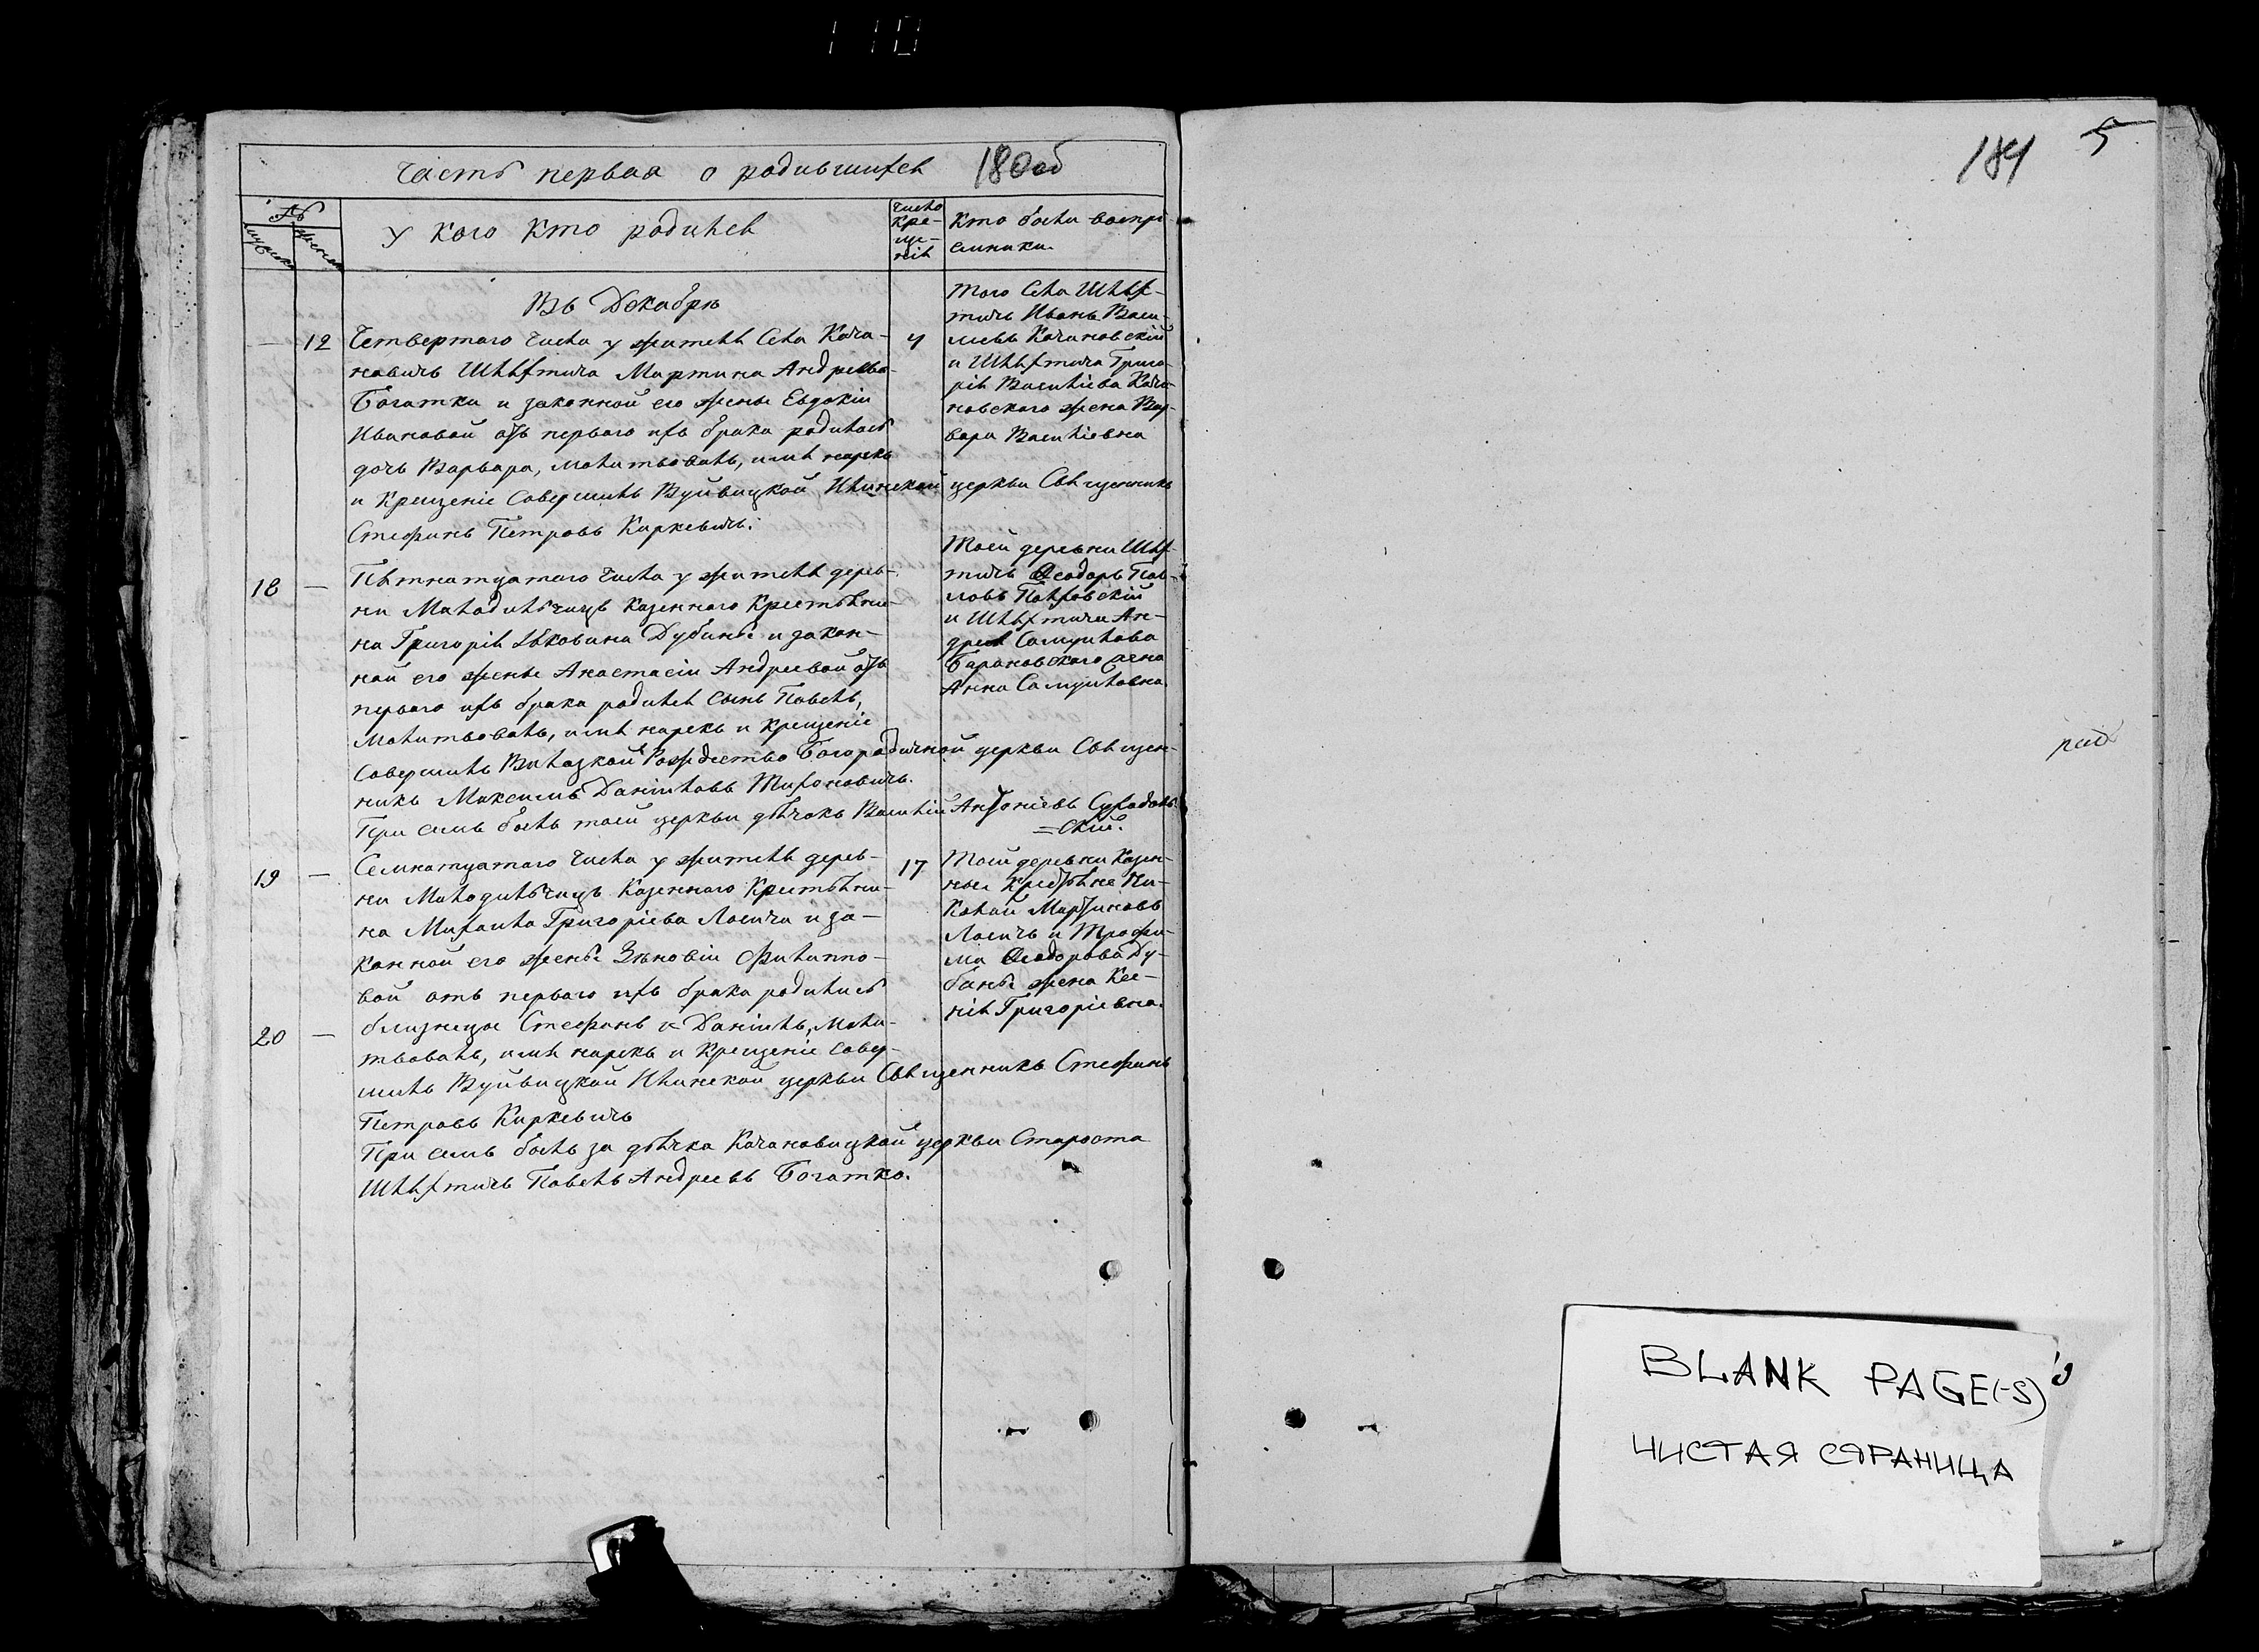 110
Часть первая о родившихся 180об
№
мужеска
женска
У кого кто родился
Число
кре-
ще-
нія
Кто были воспрі-
емники.
Въ Декабрѣ
12
Четвертаго числа у жителя Села Кача-
новичь Шляхтича Мартина Андреева
Богатки и законной его жены Евдокіи
Ивановой отъ перваго ихъ брака родилась
дочь Варвара, молитвовалъ, имя нарекъ
и крещеніе совершилъ Вуйвицкой Ильинской церкви Священникъ
Стефанъ Петровъ Киркевичь.
4
Того Села Шлях-
тичь Иванъ Васи-
льевъ Качановскій
и Шляхтича Григо-
рія Василіева Кача-
новского жена Вар-
вара Василіевна
18
Пятнатцатаго числа у жителя дерев-
ни Молодильчицъ казеннаго крестьяни-
на Григорія Яковина Дубины и закон-
ной его жены Анастасіи Андреевой отъ
перваго ихъ брака родился сынъ Павелъ,
молитвовалъ, имя нарекъ и крещеніе
совершилъ Вилазкой Рождество Богородичной церкви Священ-
никъ Максимъ Даніиловъ Тихоновичь.
При семъ былъ тоей церкви дьячокъ Василій Антоніевъ Суходоль-
=скій.
Тоей деревни Шлях-
тичь Ѳеодоръ Пав-
ловъ Поляховскій
и Шляхтича Ан-
дрея Самуилова
Барановского жена
Анна Самуиловна.
19
Семнатцатаго числа у жителя дерев-
ни Молодильчицъ казеннаго крестьяни-
на Михаила Григоріева Лосича и за-
конной его жены Зѣновіи Филиппо-
вой отъ перваго ихъ брака родились
20
близнецы Стефанъ и Даніилъ, моли-
твовалъ, имя нарекъ и крещеніе совер-
шилъ Вуйвицкой Ильинской церкви Священникъ Стефанъ
Петровъ Киркевичь
При семъ былъ за дьячка Качановицкой церкви Староста
Шляхтичь Павелъ Андреевъ Богатко.
17
Тоей деревни казен-
ные крестьяне Ни-
колай Мартиновъ
Лосичь и Трофи-
ма Ѳеодорова Ду-
бины жена Ксе-
нія Григоріевна.
181 5
BLANK PAGE(-S)
ЧИСТАЯ СТРАНИЦА